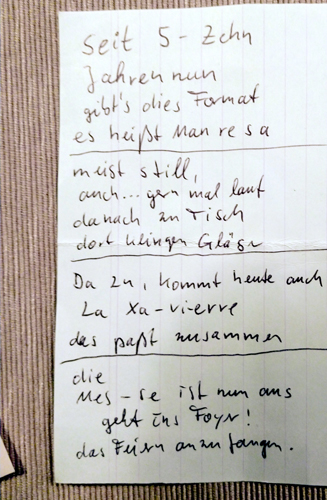 seit 5 - Zehn
Jahren nun
gibt's dies Format
es heißt Man re sa
meist still,
auch... gern mal laut
danach zu Tisch
dort klingen Gläsr
Da zu, kommt heute auch
La Xa-vi-erre
das paßt zusammen
die
Mes-se ist nun aus
geht ins Foyr!
das Feiern anzufangen.